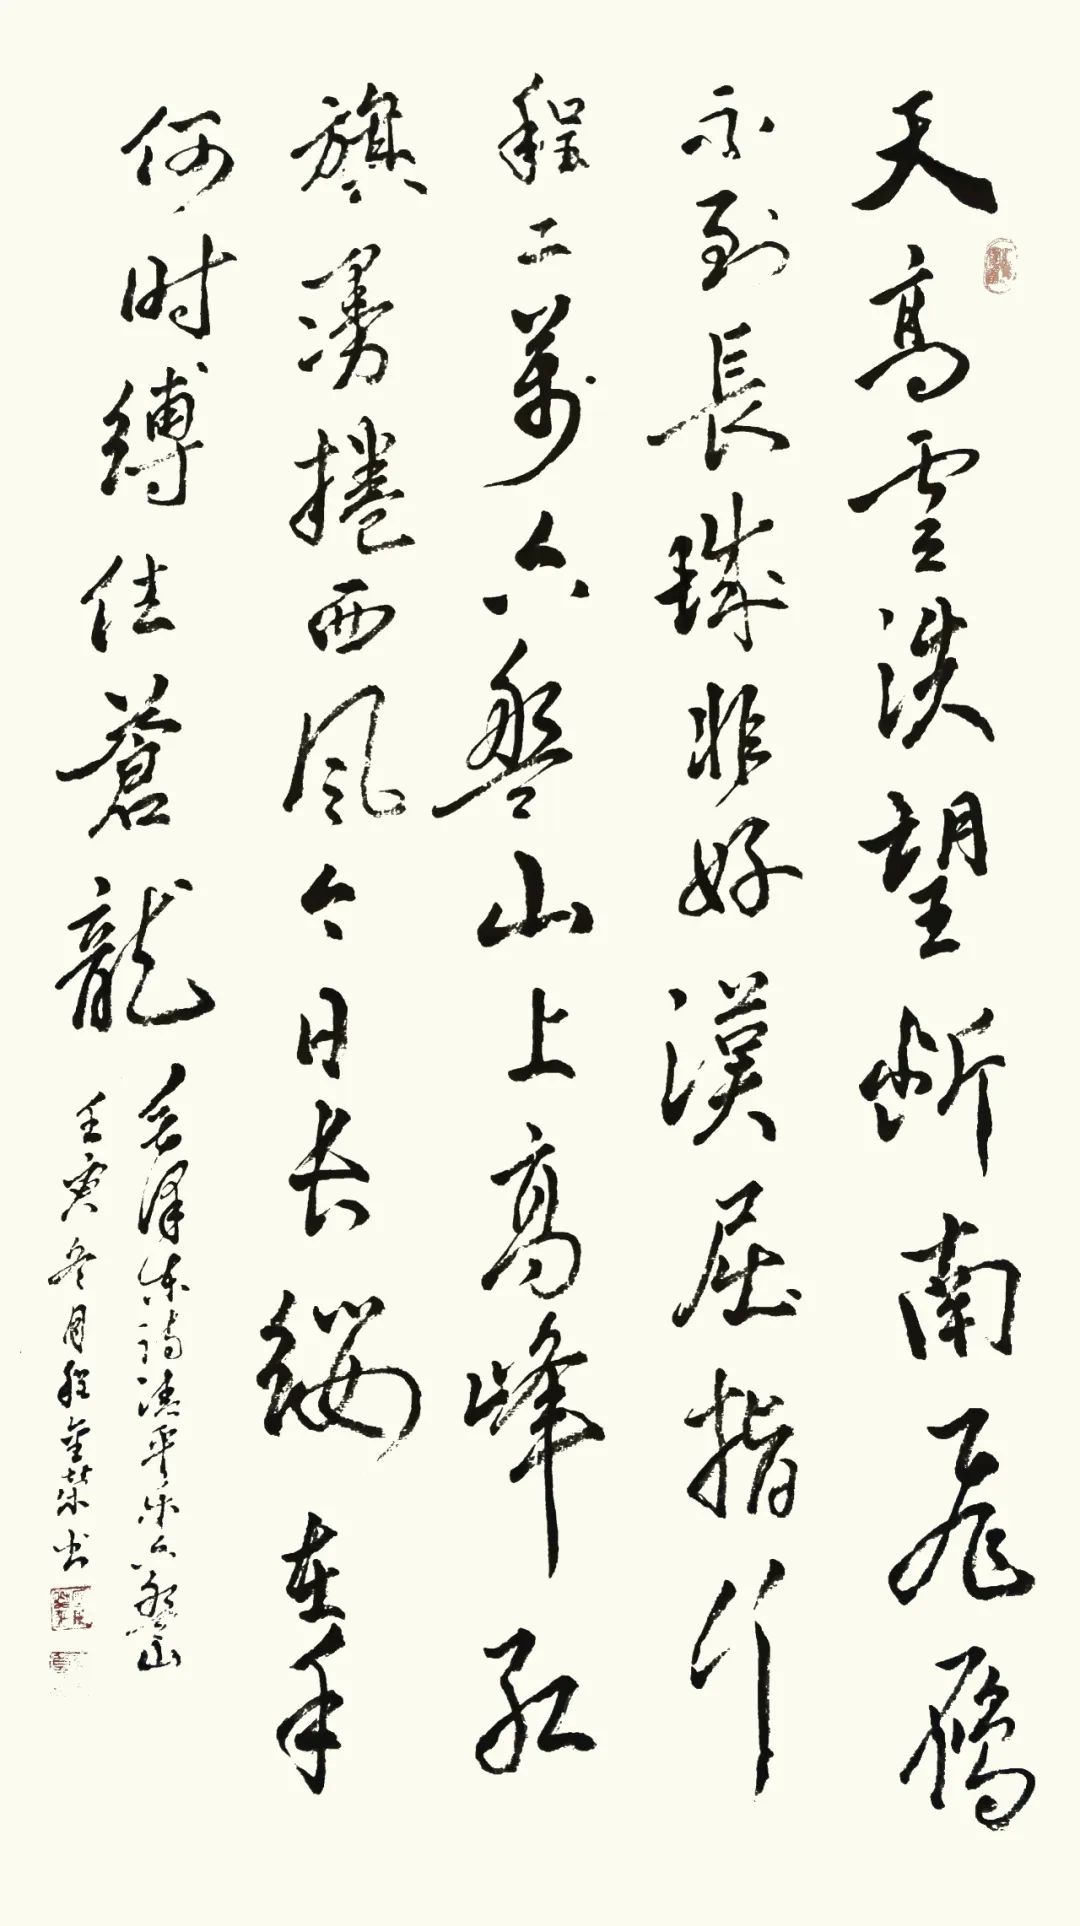 天高雲淡望斷南飛鴈
不到長城非好漢屈指行
程二萬六盤山上高峰紅
旗漫捲西風今日长纓在手
何时縛住蒼龍
毛澤东詩清平乐六盤山
壬寅冬月程金荣书